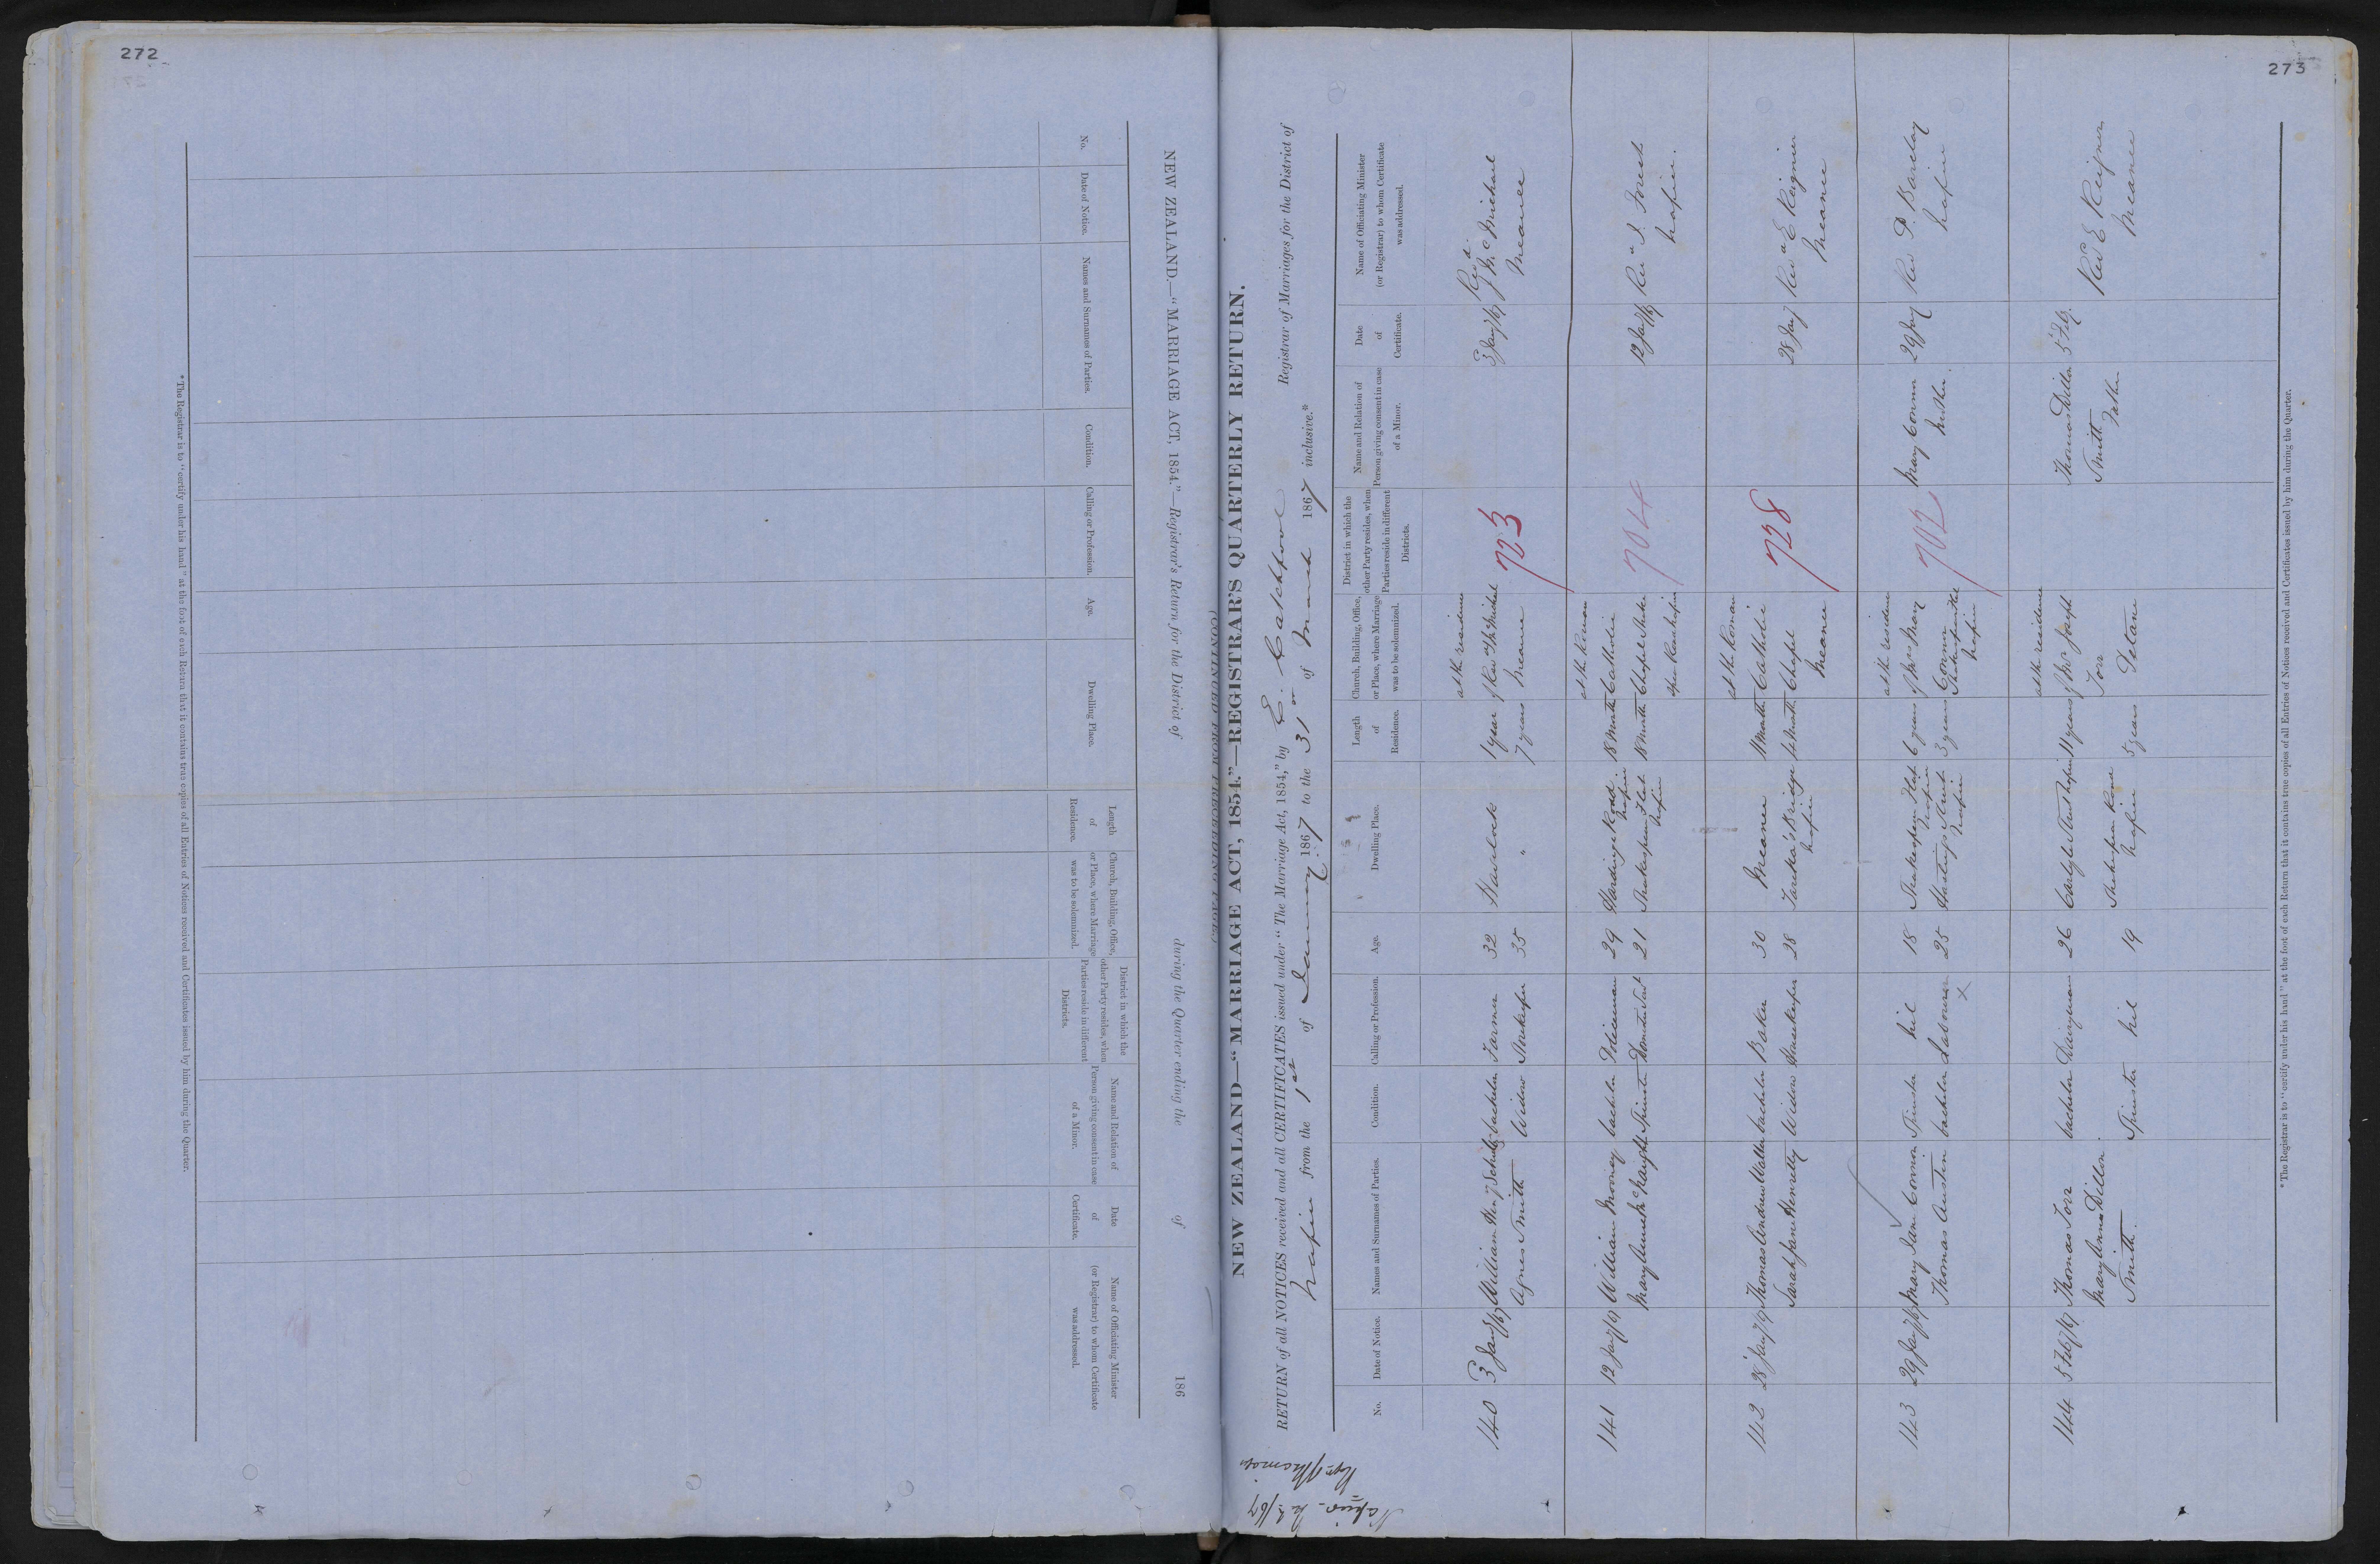 272
NEW ZEALAND.—"MARRIAGE ACT, 1854."—Registrar's Return for the District of during the Quarter ending the of 186
(CONTINUED FROM PRECEDING PAGE.)
No.
Date of Notice.
Names and Surnames of Parties.
Condition.
Calling or Profession.
Age.
Dwelling Place.
Length
of
Residence.
Church, Building, Office,
or Place, where Marriage
was to be solemnized.
District in which the
other Party resides, when
Parties reside in different
Districts.
Name and Relation of
Person giving consent in case
of a Minor.
Date
of
Certificate.
Name of Officiating Minister
(or Registrar) to whom Certificate
was addressed.
* The Registrar is to "certify under his hand" at the foot of each Return that it contains true copies of all Entries of Notices received and Certificates issued by him during the Quarter.
273
NEW ZEALAND—"MARRIAGE ACT, 1854."—REGISTRAR'S QUARTERLY RETURN.
RETURN of all NOTICES received and all CERTIFICATES issued under "The Marriage Act, 1854," by E. Catchpool Registrar of Marriages for the District of
Napier from the 1st of January 1867 to the 31st of March 1867 inclusive.*
No.
Date of Notice.
Names and Surnames of Parties.
Condition.
Calling or Profession.
Age.
Dwelling Place.
Length
of
Residence.
Church, Building, Office,
or Place, where Marriage
was to be solemnized.
District in which the
other Party resides, when
Parties reside in different
Districts.
Name and Relation of
Person giving consent in case
of a Minor.
Date
of
Certificate.
Name of Officiating Minister
(or Registrar) to whom Certificate
was addressed.
140
3 Jany/67
William Hy Schultz
Agnes Smith
bachelor
Widow
Farmer
Storekeeper
32
35
Havelock
"
1 year
7 years
at the residence
of Rev. McMichael
Meanee
723
3 Jany/67
Revd
J McMichael
Meanee
141
12 Jany/67
William Mooney
Mary Ann McNaught
bachelor
Spinster
Policeman
Domestic Sert
29
21
Hardinge Road
Napier
Shakespeare Road
Napier
18 Months
18 Months
at the Roman
Catholic
Chapel Shakes
peare Road Napier
704
12 Jany/67
Revd J. Forest
Napier.
142
28 Jany/67
Thomas Andrew Watters
Sarah Jane Henretty
bachelor
Widow
Baker
Housekeeper
30
28
Meanee
Tareha's Bridge
Napier
11 Months
4 Months
at the Roman
Catholic
Chapel
Meanee
728
28 Jany
Revd E Reignier
Meanee
143
29 Jany/67
Mary Jane Connor
Thomas Austin
Spinster
bachelor
Nil
Labourer
×
18
25
Shakespeare Road
Napier
Hastings Street
Napier
6 years
3 years
at the residence
of Mrs Mary
Connor
Napier
702
Mary Connor
Mother.
29 Jany
Rev P. Barclay
Napier
144
5 Feby/67
Thomas Torr
Mary Anne Dillon
Smith.
bachelor
Spinster
Dairyman
Nil
26
19
Carlyle Street Napier
Shakespeare Road
Napier
11 years
5 years
at the residence
of Mr Joseph
Torr
Petane
Thomas Dillon
Smith
Father
5 Feby.
Revd E Reignier
Meanee
* The Registrar is to "certify under his hand" at the foot of each Return that it contains true copies of all Entries of Notices received and Certificates issued by him during the Quarter.